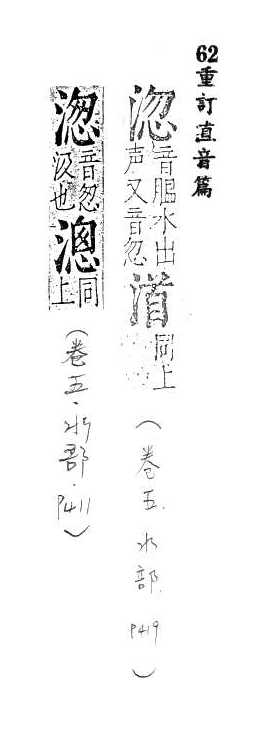 62重訂直音篇
淴音膃水出声又音忽㵧同上
(卷五.水部.P419)
淴音忽汲也漗同上
(卷五.水部.P411)